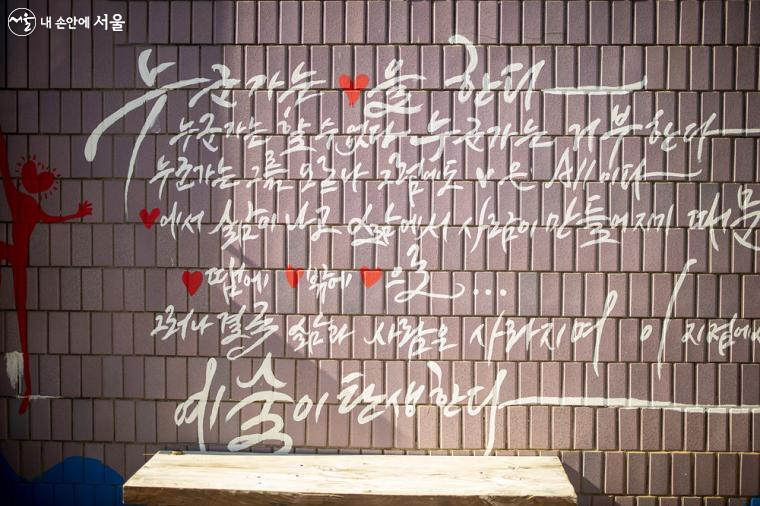 서울 내 손안에 서울
누군가는 ♥을 한다
누군가는 할 수 없다 누군가는 거부한다
누군가는 그를 모르나 그럼에도 ♥은 All이다
♥에서 삶이 나고 삶에서 사람이 만들어지기 때문
♥땜에 ♥밖에 ♥으로...
그러나 결국 삶과 사람은 사라지며 이 지점에서
예술이 탄생한다